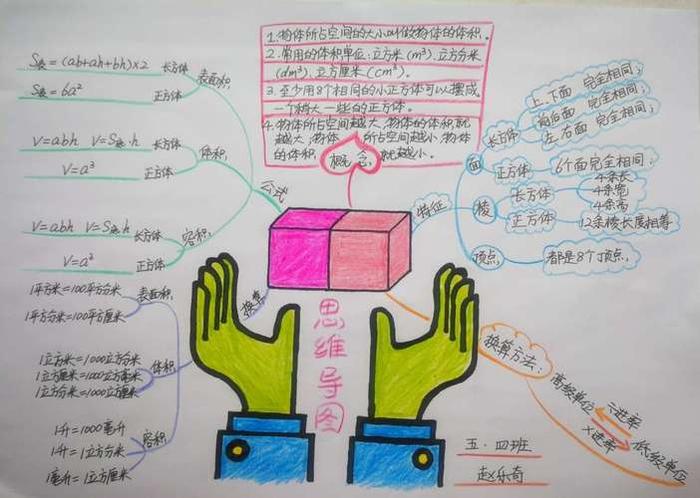 1.物体所占空间的大小叫做物体的体积。
2.常用的体积单位:立方米(m³),立方分米
(dm³)、立方厘米(cm³)。
3.至少用8个相同的小正方体可以摆成
一个稍大一些的正方体。
4.物体所占空间越大,物体的体积就
越大;物体 所占空间越小,物体
的体积 就越小。
概念
公式
表面积
S表=(ab+ah+bh)×2 长方体
S表=6a² 正方体
体积
V=abh V=S底·h 长方体
V=a³ 正方体
容积
V=abh V=S底·h 长方体
V=a³ 正方体
换算
表面积
1平方米=100平方分米
1平方分米=100平方厘米
体积
1立方米=1000立方分米
1立方分米=1000立方厘米
容积
1升=1000毫升
1升=1立方分米
1毫升=1立方厘米
特征
面
长方体
上、下面 完全相同;
前后面 完全相同;
左右面 完全相同;
正方体
6个面完全相同.
棱
长方体
4条长
4条宽
4条高
正方体
12条棱长度相等
顶点
都是8个顶点.
换算方法:
高级单位
÷进率
×进率
低级单位
思维导图
五·四班
赵乐奇